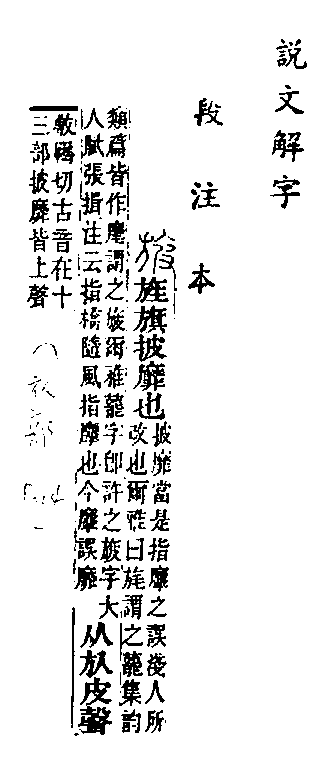 說文解字
段注本
旇旌旗披靡也
披靡當是指麾之誤淺人所
改也爾雅曰旄謂之藣集韵
類篇皆作麾謂之旇爾雅藣字卽許之旇字大
人賦張揖注云指橋隨風指靡也今靡誤靡
从㫃皮聲
敷羈切古音在十
三部披靡皆上聲
八㫃部